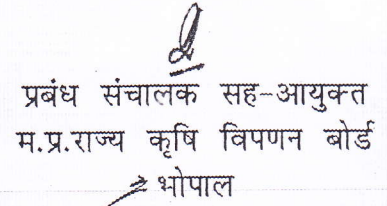 प्रबंध संचालक सह-आयुक्त
म.प्र.राज्य कृषि विपणन बोर्ड
भोपाल